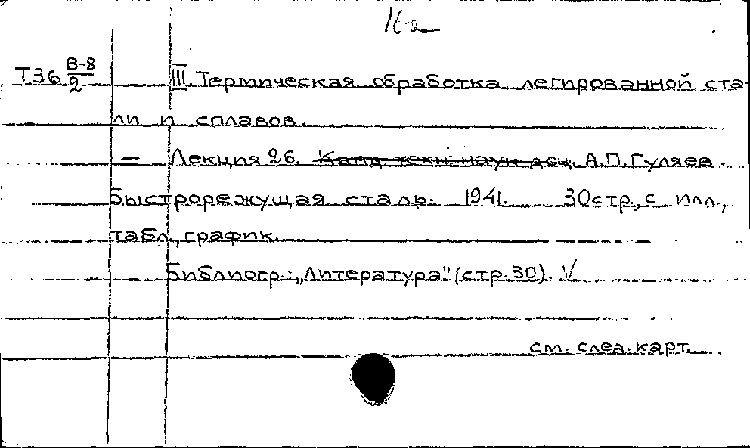 Т36 В-8/2 III. Термическая обработка легированной ста-
ли и сплавов.
— Лекция 26. Канд. техн. наук доц. А.П.Гуляев.
Быстрорежущая сталь. 1941. 30стр., с илл.,
табл., график.
Библиогр.: „Литература" (стр. 30). V
см. след. карт.